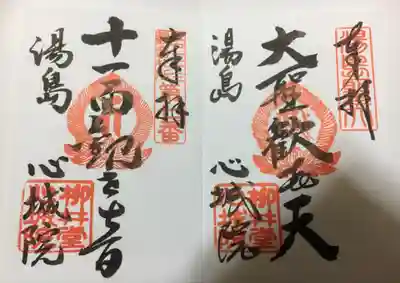 奉拝
大聖歓喜天
湯島 心城院
柳井堂
奉拝
十一面観世音
湯島 心城院
柳井堂